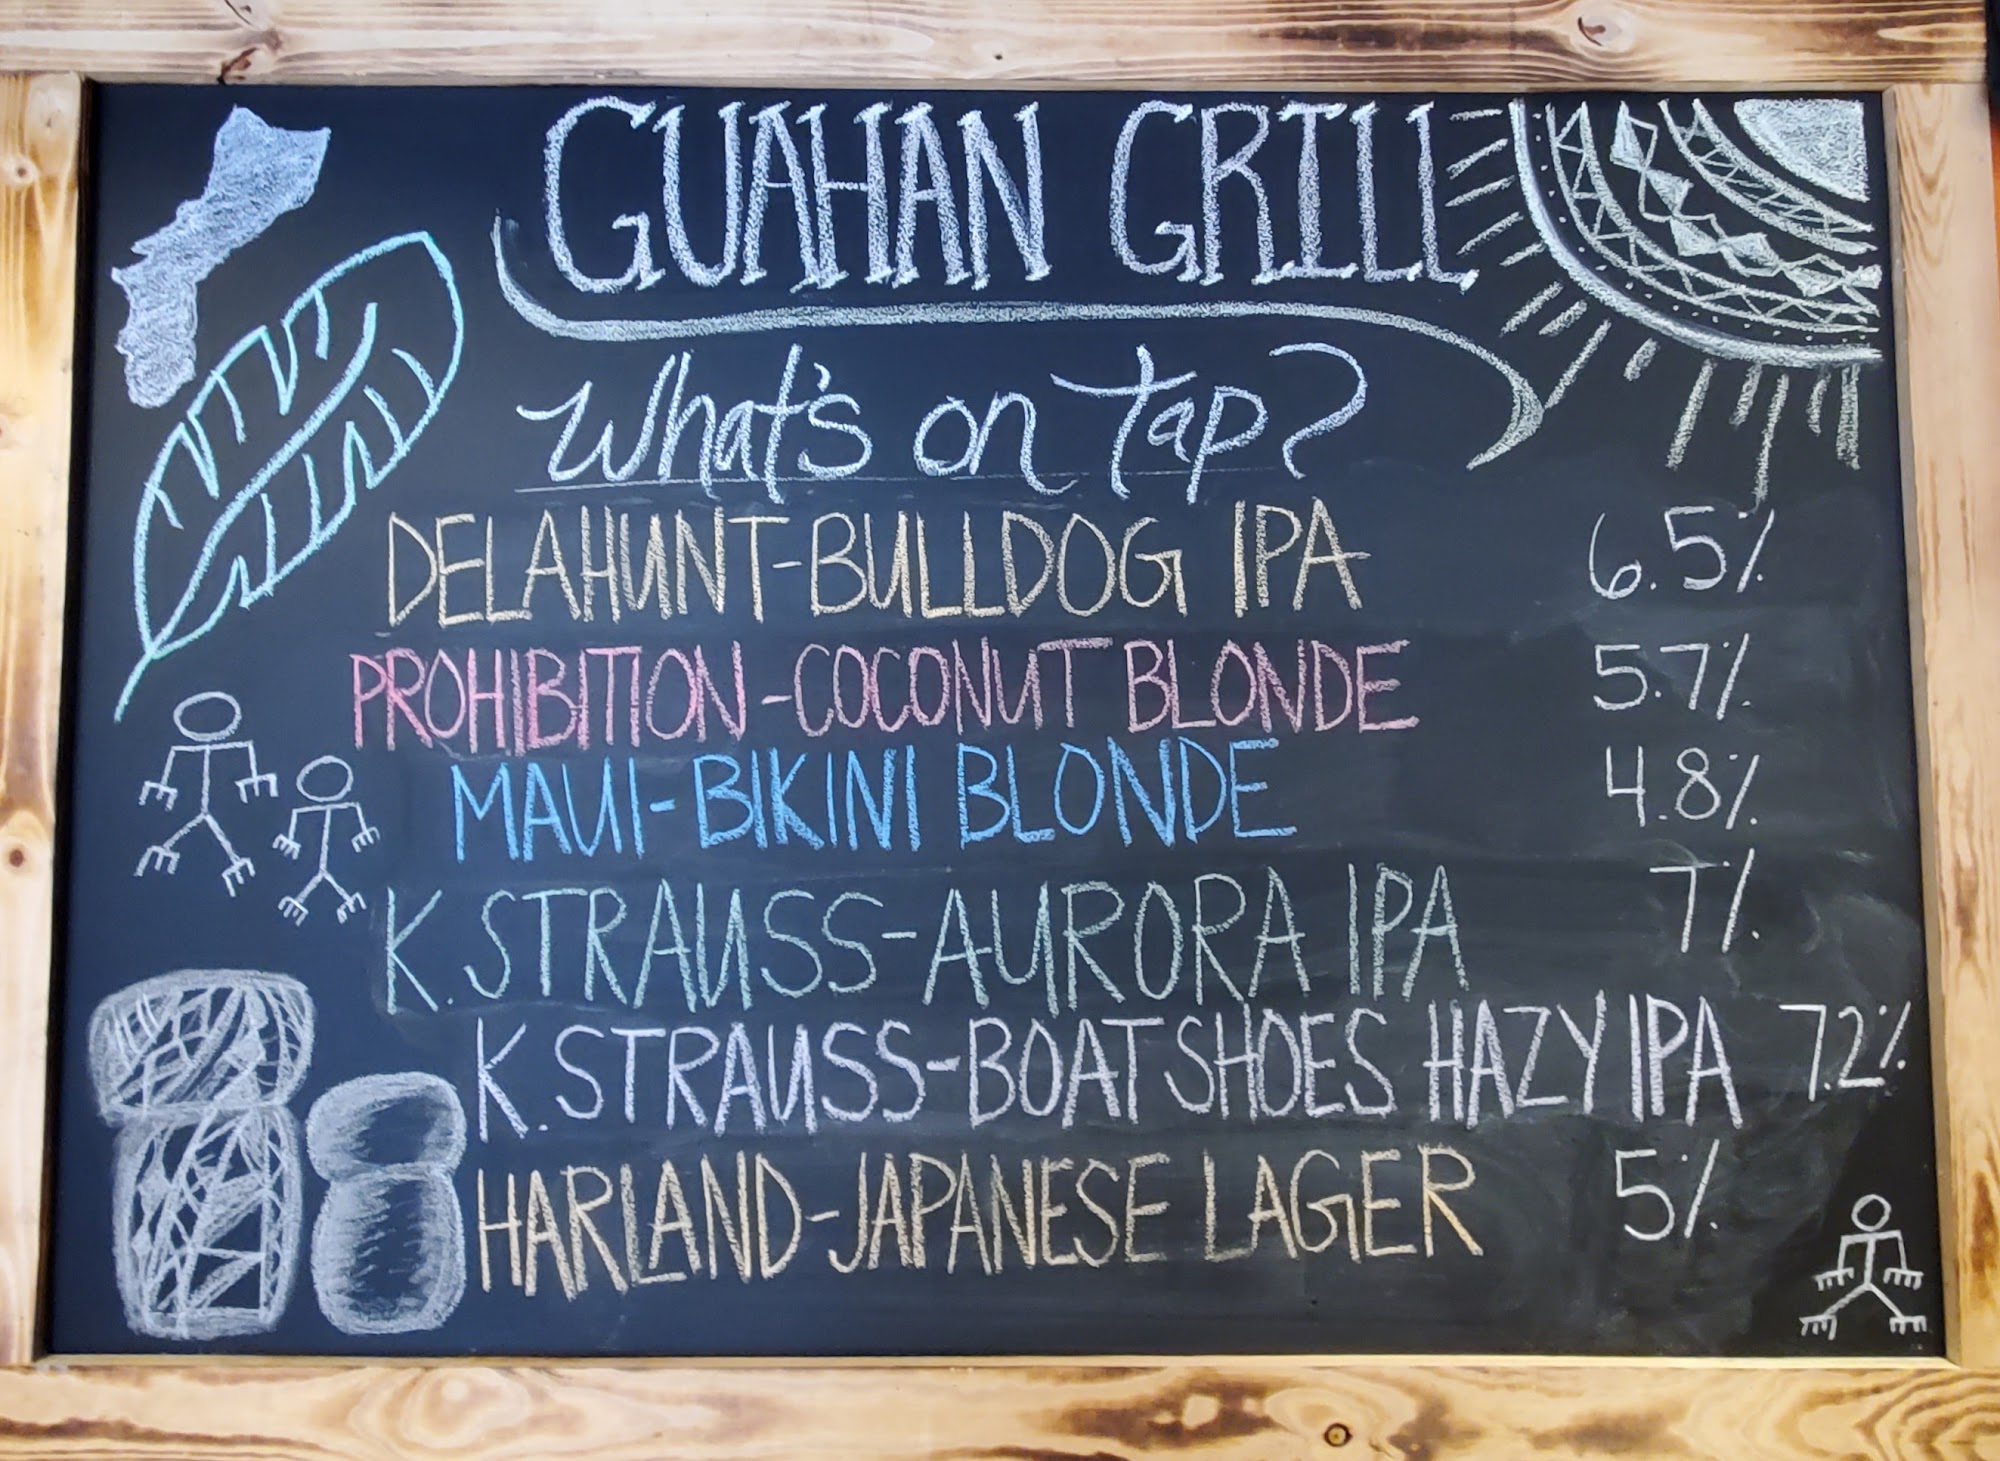 GUAHAN GRILL
What's on Tap?
DELAHUNT-BULLDOG IPA 6.5%
PROHIBITION-COCONUT BLONDE 5.7%
MAUI-BIKINI BLONDE 4.8%
K.STRAUSS-AURORA IPA 7%
K.STRAUSS-BOAT SHOES HAZY IPA 7.2%
HARLAND-JAPANESE LAGER 5%